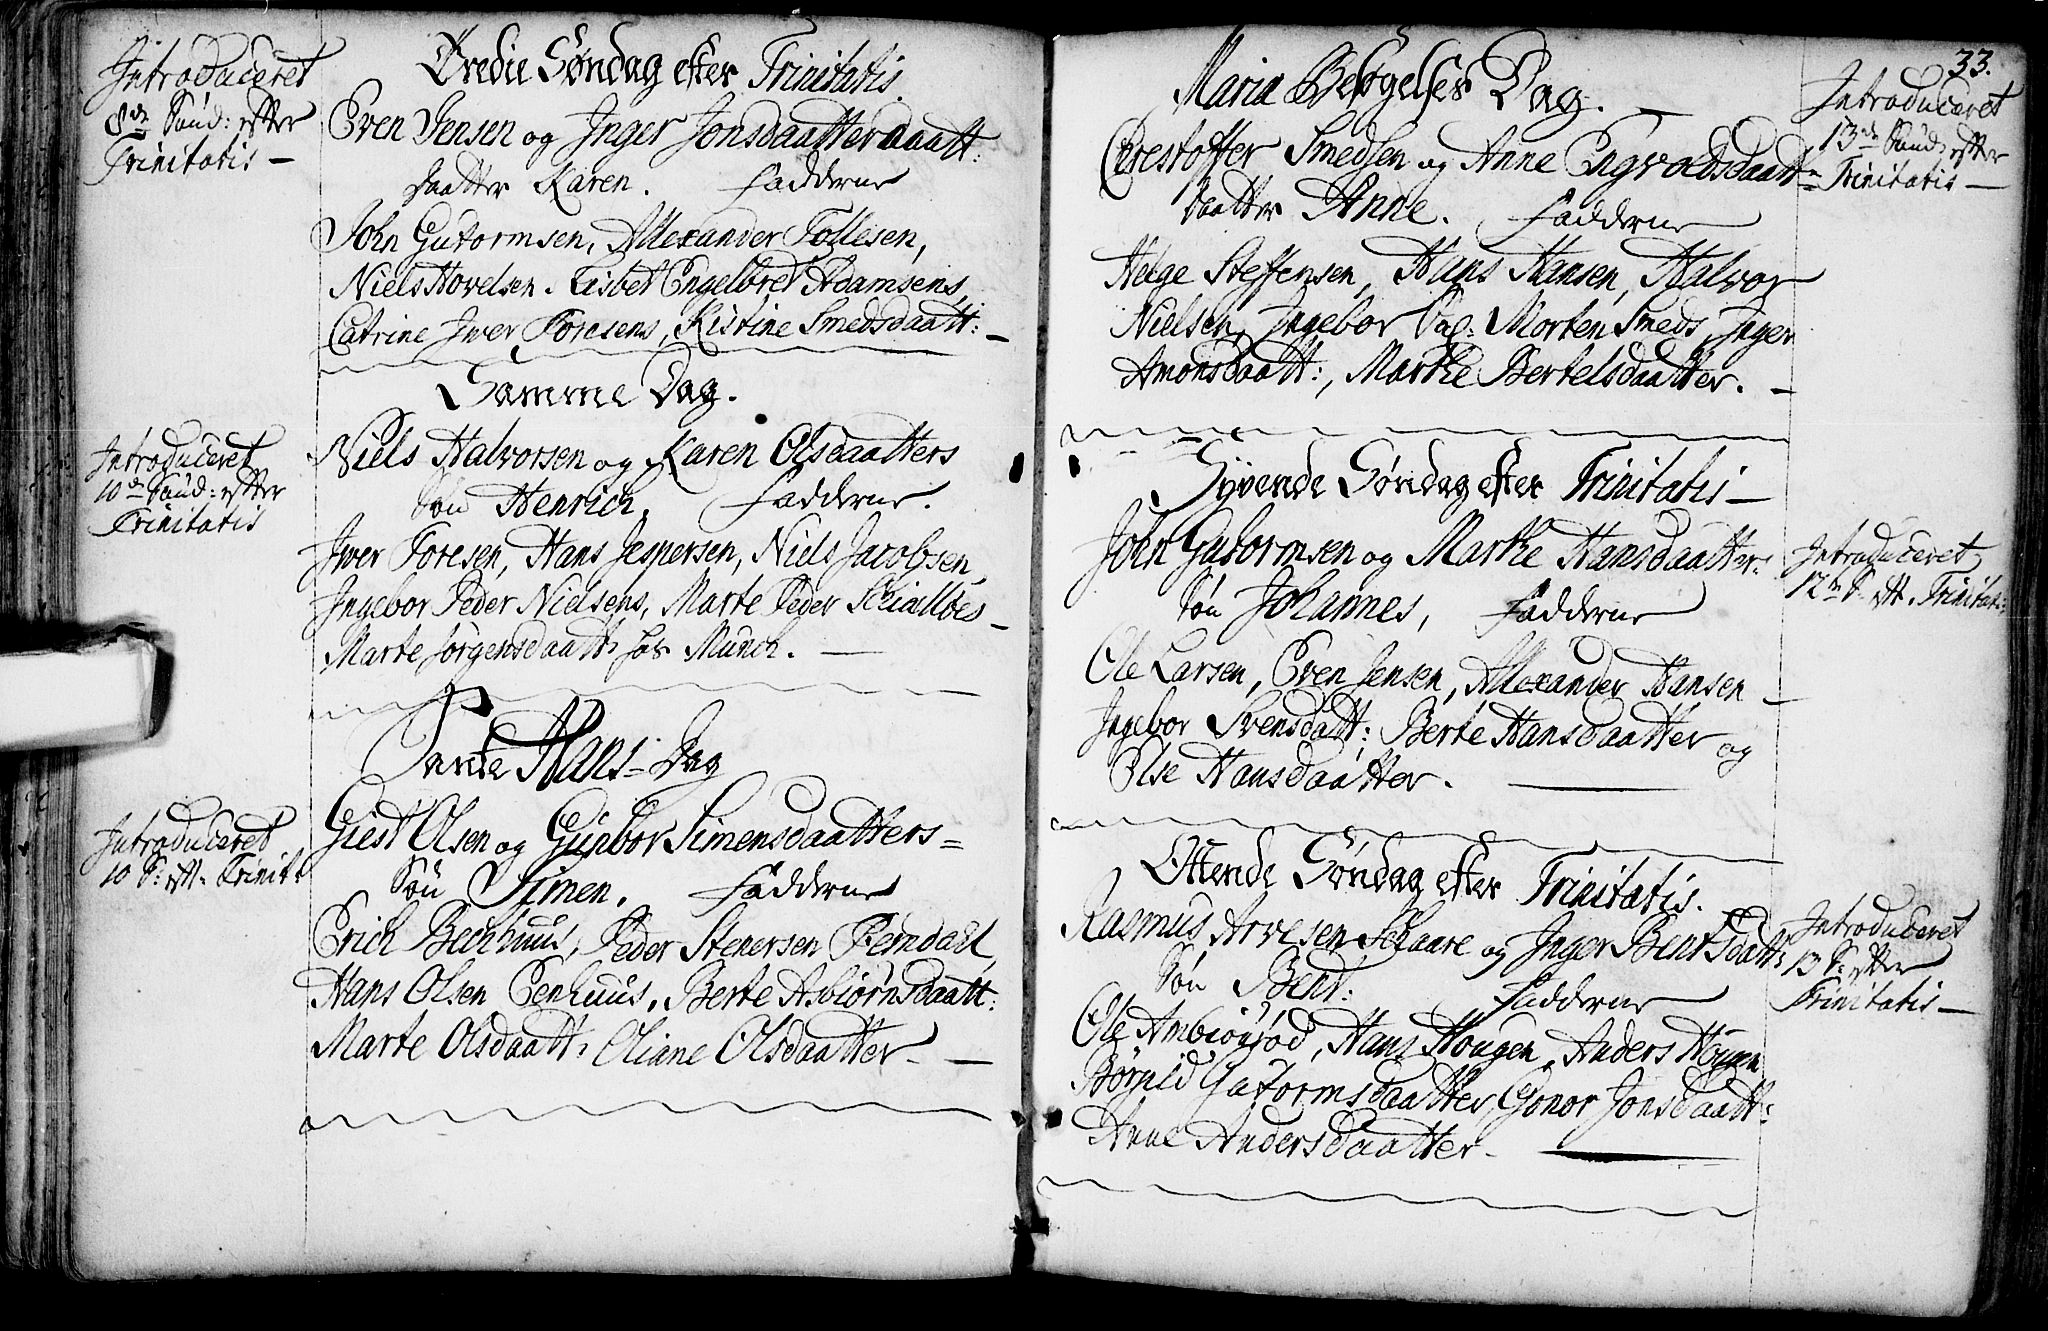 Introduceret
8de Sønd: efter
Trinitatis —
Tredie Søndag efter Trinitatis.
Even Jensen og Inger Jonsdaatter daatt:
daatter Karen. Fadderne
John Gutormsen, Allexander Tollesen,
Niels Hovelsen. Lisbet Engelbret Adamsens,
Catrine Iwer Toresens, Kistine Smedsdaatt: —
Samme Dag.
Introduceret
10de Sønd: efter
Trinitatis
Niels Halvorsen og Karen Olsdaatters
Søn Henrich, Fadderne.
Iwer Toresen, Hans Jespersen, Niels Jacobsen,
Ingebor Peder Nielsens, Marte Peder
Marte Jørgensdaatt: hos Munch. —
Sancte Hans=Dag
Introduceret
10 S: eft: Trinit:
Giest Olsen og Gunbor Simensdaatters=
Søn Simen. Fadderne
Erich Bechhuus, Peder Stenersen
Hans Olsen Eenhuus, Berte Asbiørnsdaatt:
Marte Olsdaatt: Oliane Olsdaatter. —
33.
Maria Besøgelses Dag.
Introduceret
13de Sønd: efter
Trinitatis —
Christoffer Smedsen og Anne Engvoldsdaatt:
daatter Anne. Fadderne
Helge Steffensen, Hans Hansen, Halvor
Nielsen, Ingebor Morten Smeds, Inger
Amonsdaatt:, Marthe Bertelsdaatter. —
Syvende Søndag efter Trinitatis —
Introduceret
12te S: eft. Trinitat:
John Gutormsen og Marthe Hansdaatter:
Søn Johannes, Fadderne
Ole Larsen, Even Jensen, Allexander Hansen —
Ingebor Svensdatt: Berte Hansdaatter og
Else Hansdaatter. —
Ottende Søndag efter Trinitatis.
Introduceret
13 S: efter
Trinitatis —
Rasmus Arvesen Schaare og Inger Bentsdatt:
Søn Bent: Fadderne
Ole Hans Hougen, Anders Hougen
Børnild Gutormsdaatter, Gonor Jonsdaatt:
Anne Andersdaatter. —